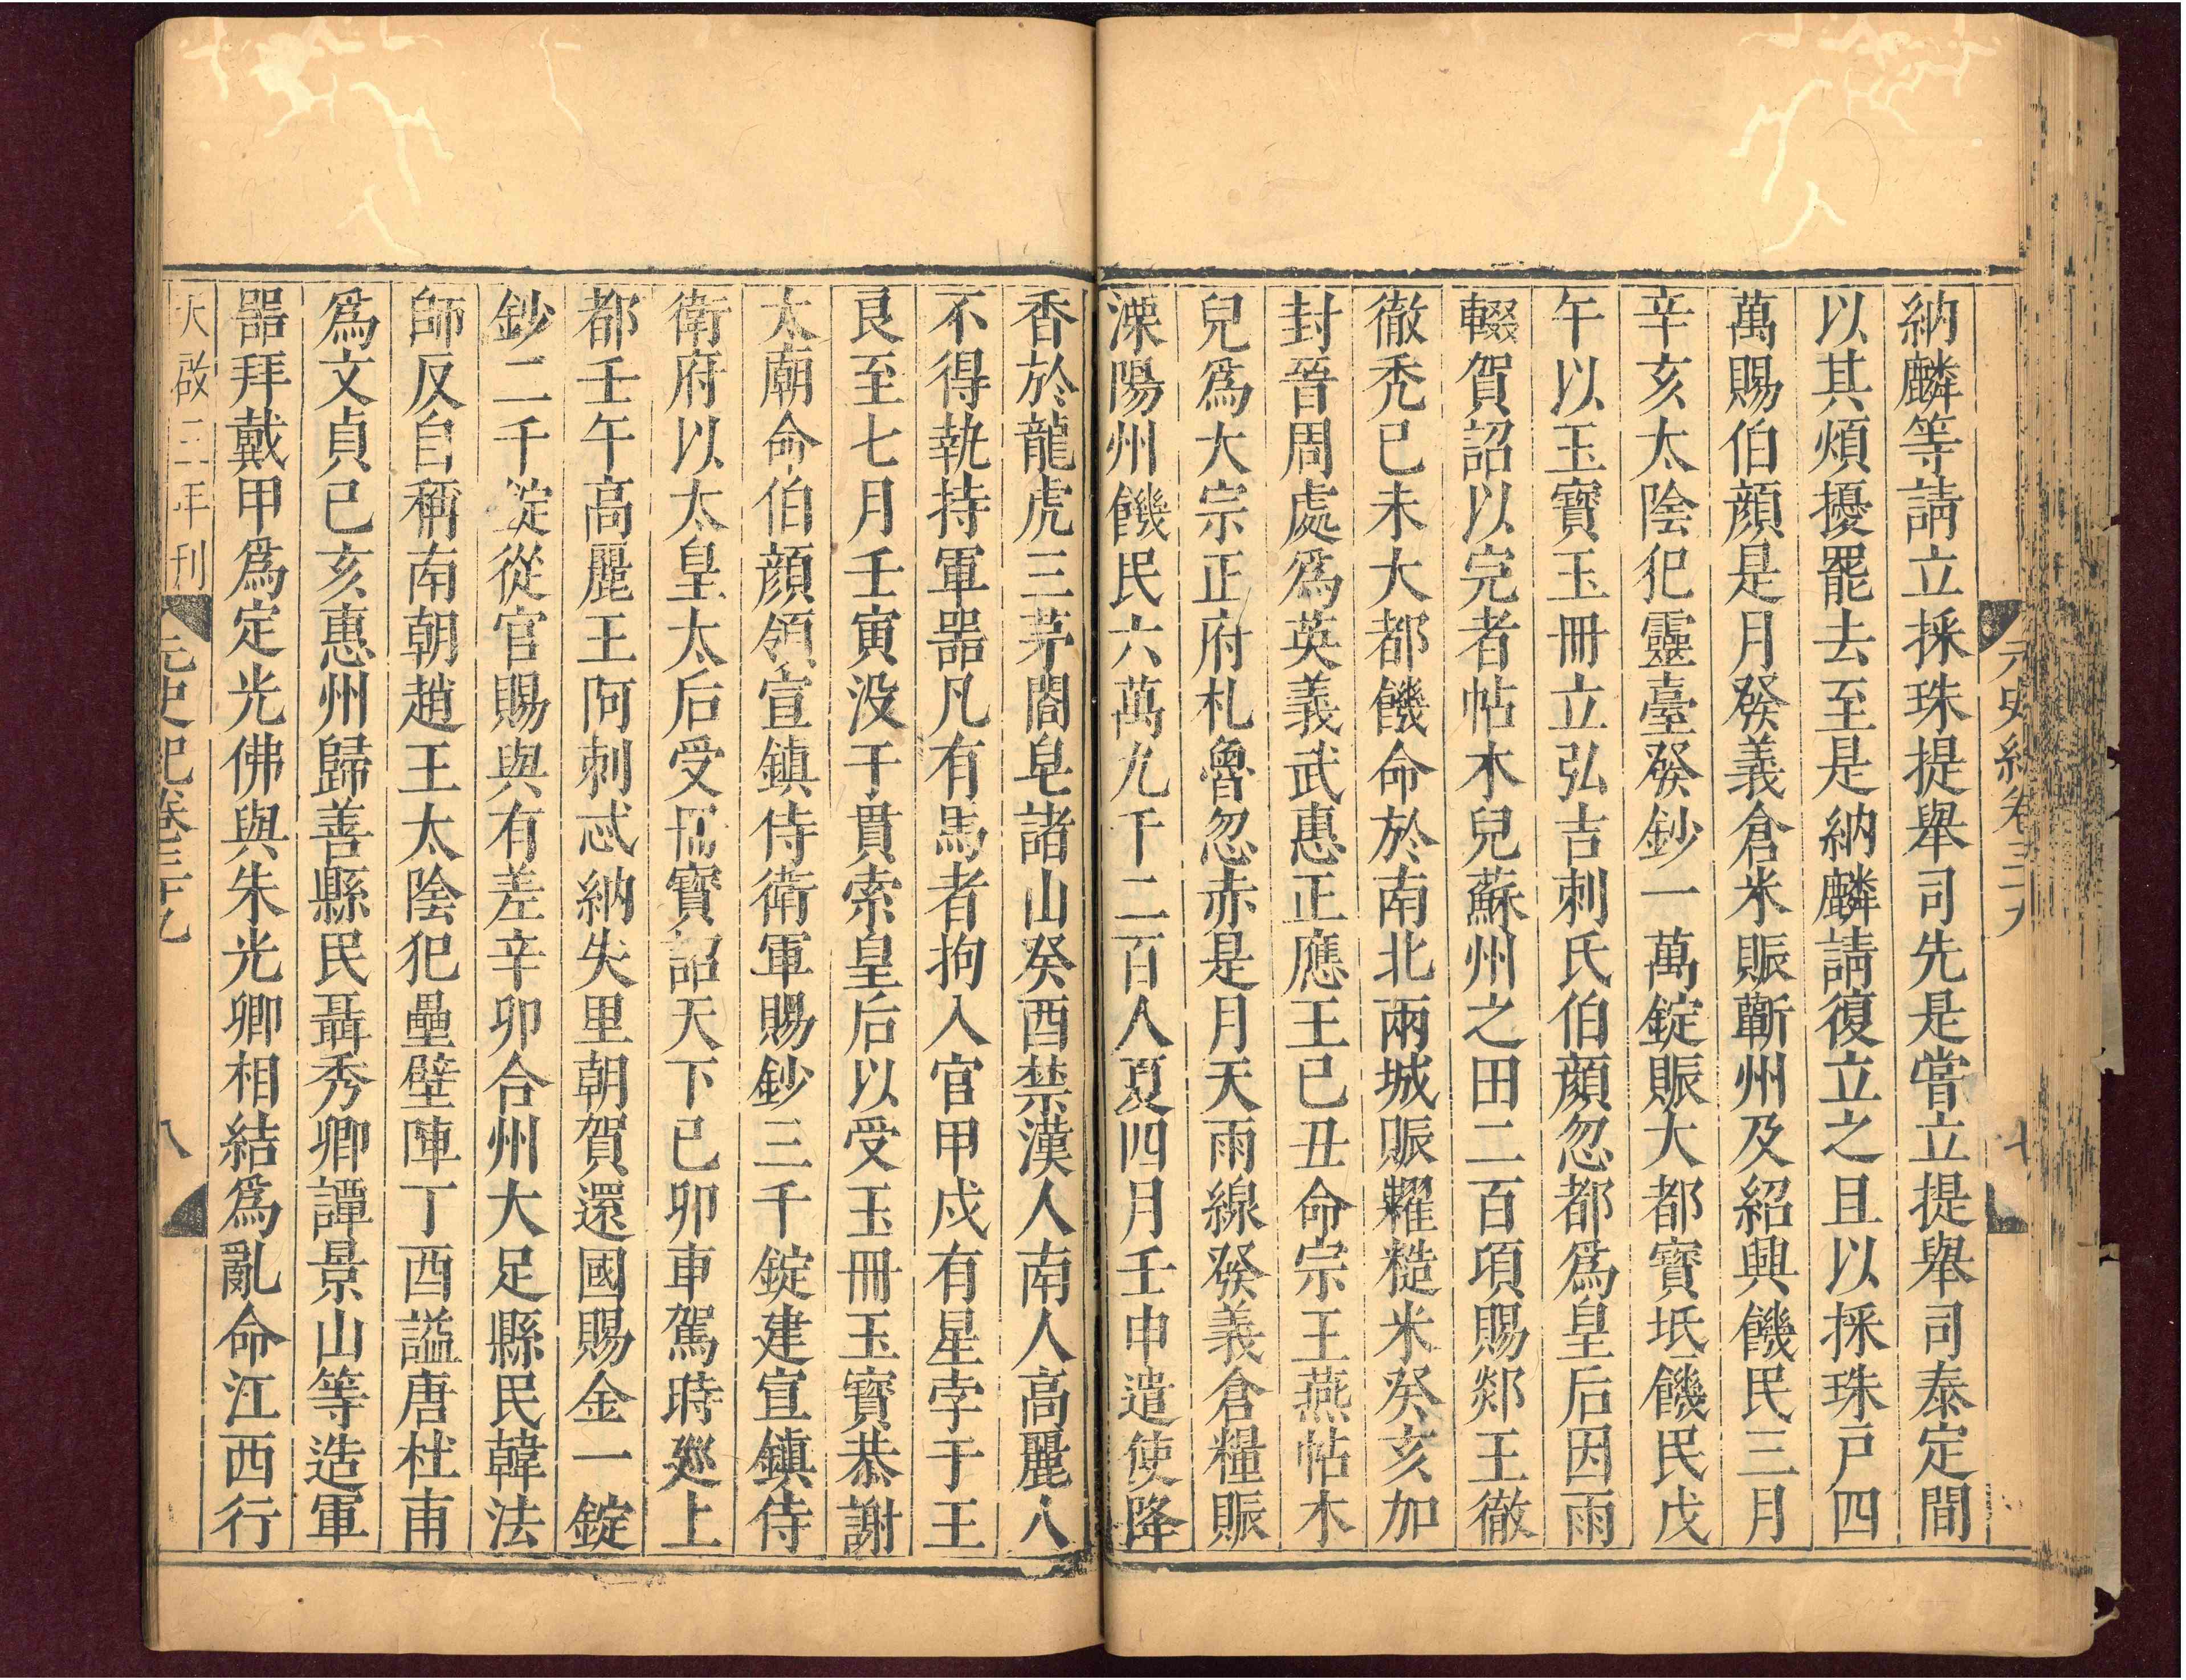 元史紀卷三九
七
納麟等請立採珠提舉司先是嘗立提舉司泰定間
以其煩擾罷去至是納麟請復立之且以採珠戸四
萬賜伯顔是月發義倉米賑蘄州及紹興饑民三月
辛亥太陰犯靈臺發鈔一萬錠賑大都寶坻饑民戊
午以玉寶玉冊立弘吉刺氏伯顔忽都爲皇后因雨
輟賀詔以完者帖木兒蘇州之田二百項賜郯王徹
徹禿已未大都饑命於南北兩城賑糶糙米癸亥加
封晉周處爲英義武惠正應王已丑命宗王燕帖木
兒爲大宗正府札魯忽赤是月天雨線發義倉糧賑
溧陽州饑民六萬九千二百人夏四月壬申遣使降
香於龍虎三茅閣皂諸山癸酉禁漢人南人高麗人
不得執持軍噐凡有馬者拘入官甲戍有星孛于王
良至七月壬寅没于貫索皇后以受玉冊玉寶恭謝
太廟命伯顔領宣鎮侍衛軍賜鈔三千錠建宣鎮侍
衛府以太皇太后受冊寶詔天下已卯車駕時廵上
都壬午高麗王阿刺忒納失里朝賀還國賜金一錠
鈔二千錠從官賜與有差辛卯合州大足縣民韓法
師反自稱南朝趙王太陰犯壘壁陣丁酉謚唐杜甫
爲文貞已亥惠州歸善縣民聶秀卿譚景山等造軍
噐拜戴甲爲定光佛與朱光卿相結爲亂命江西行
天啟三年刊
元史紀卷三十九
八